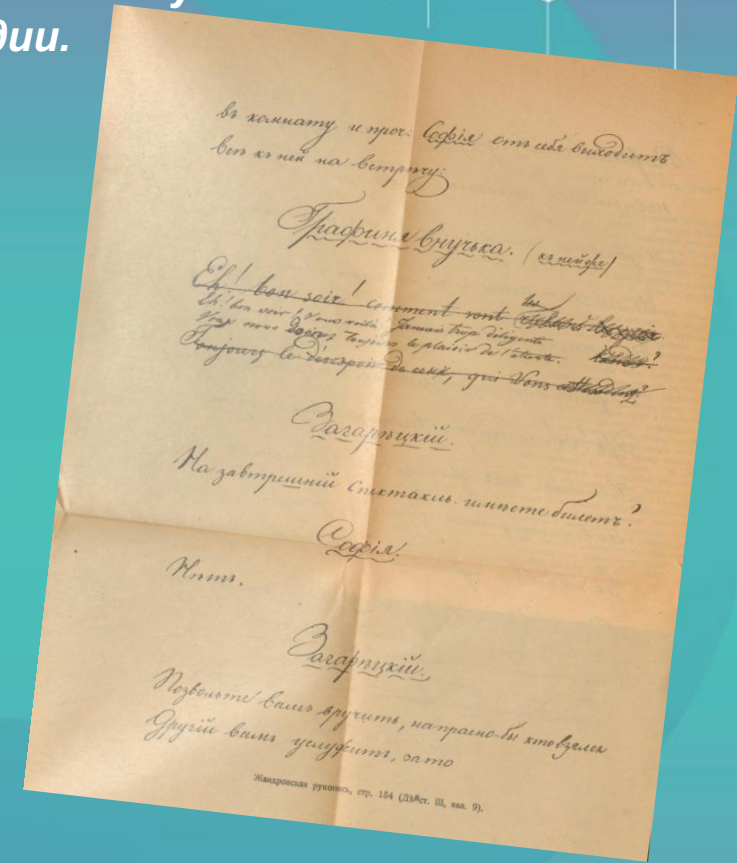 дии.
въ комнату и проч: Софія отъ себя выходитъ
всѣ къ ней на встрѣчу:
Графиня внучька. (къ ней же)
Eh! bon soir! comment vont
Eh! bon soir! Vous voilà! Jamais trop diligente
Vous nous donnez toujours le plaisir de l'attente.
Toujours le désespoir de ceux, qui Vous
Загарѣцкій.
На завтрешній спектакль имѣете билетъ?
Софія.
Нѣтъ.
Загарѣцкій.
Позвольте вамъ вручить, напрасно-бы кто взялся
Другій вамъ услужить, зато
Жандровская рукопись, стр. 154 (Дѣйст. III, явл. 9).